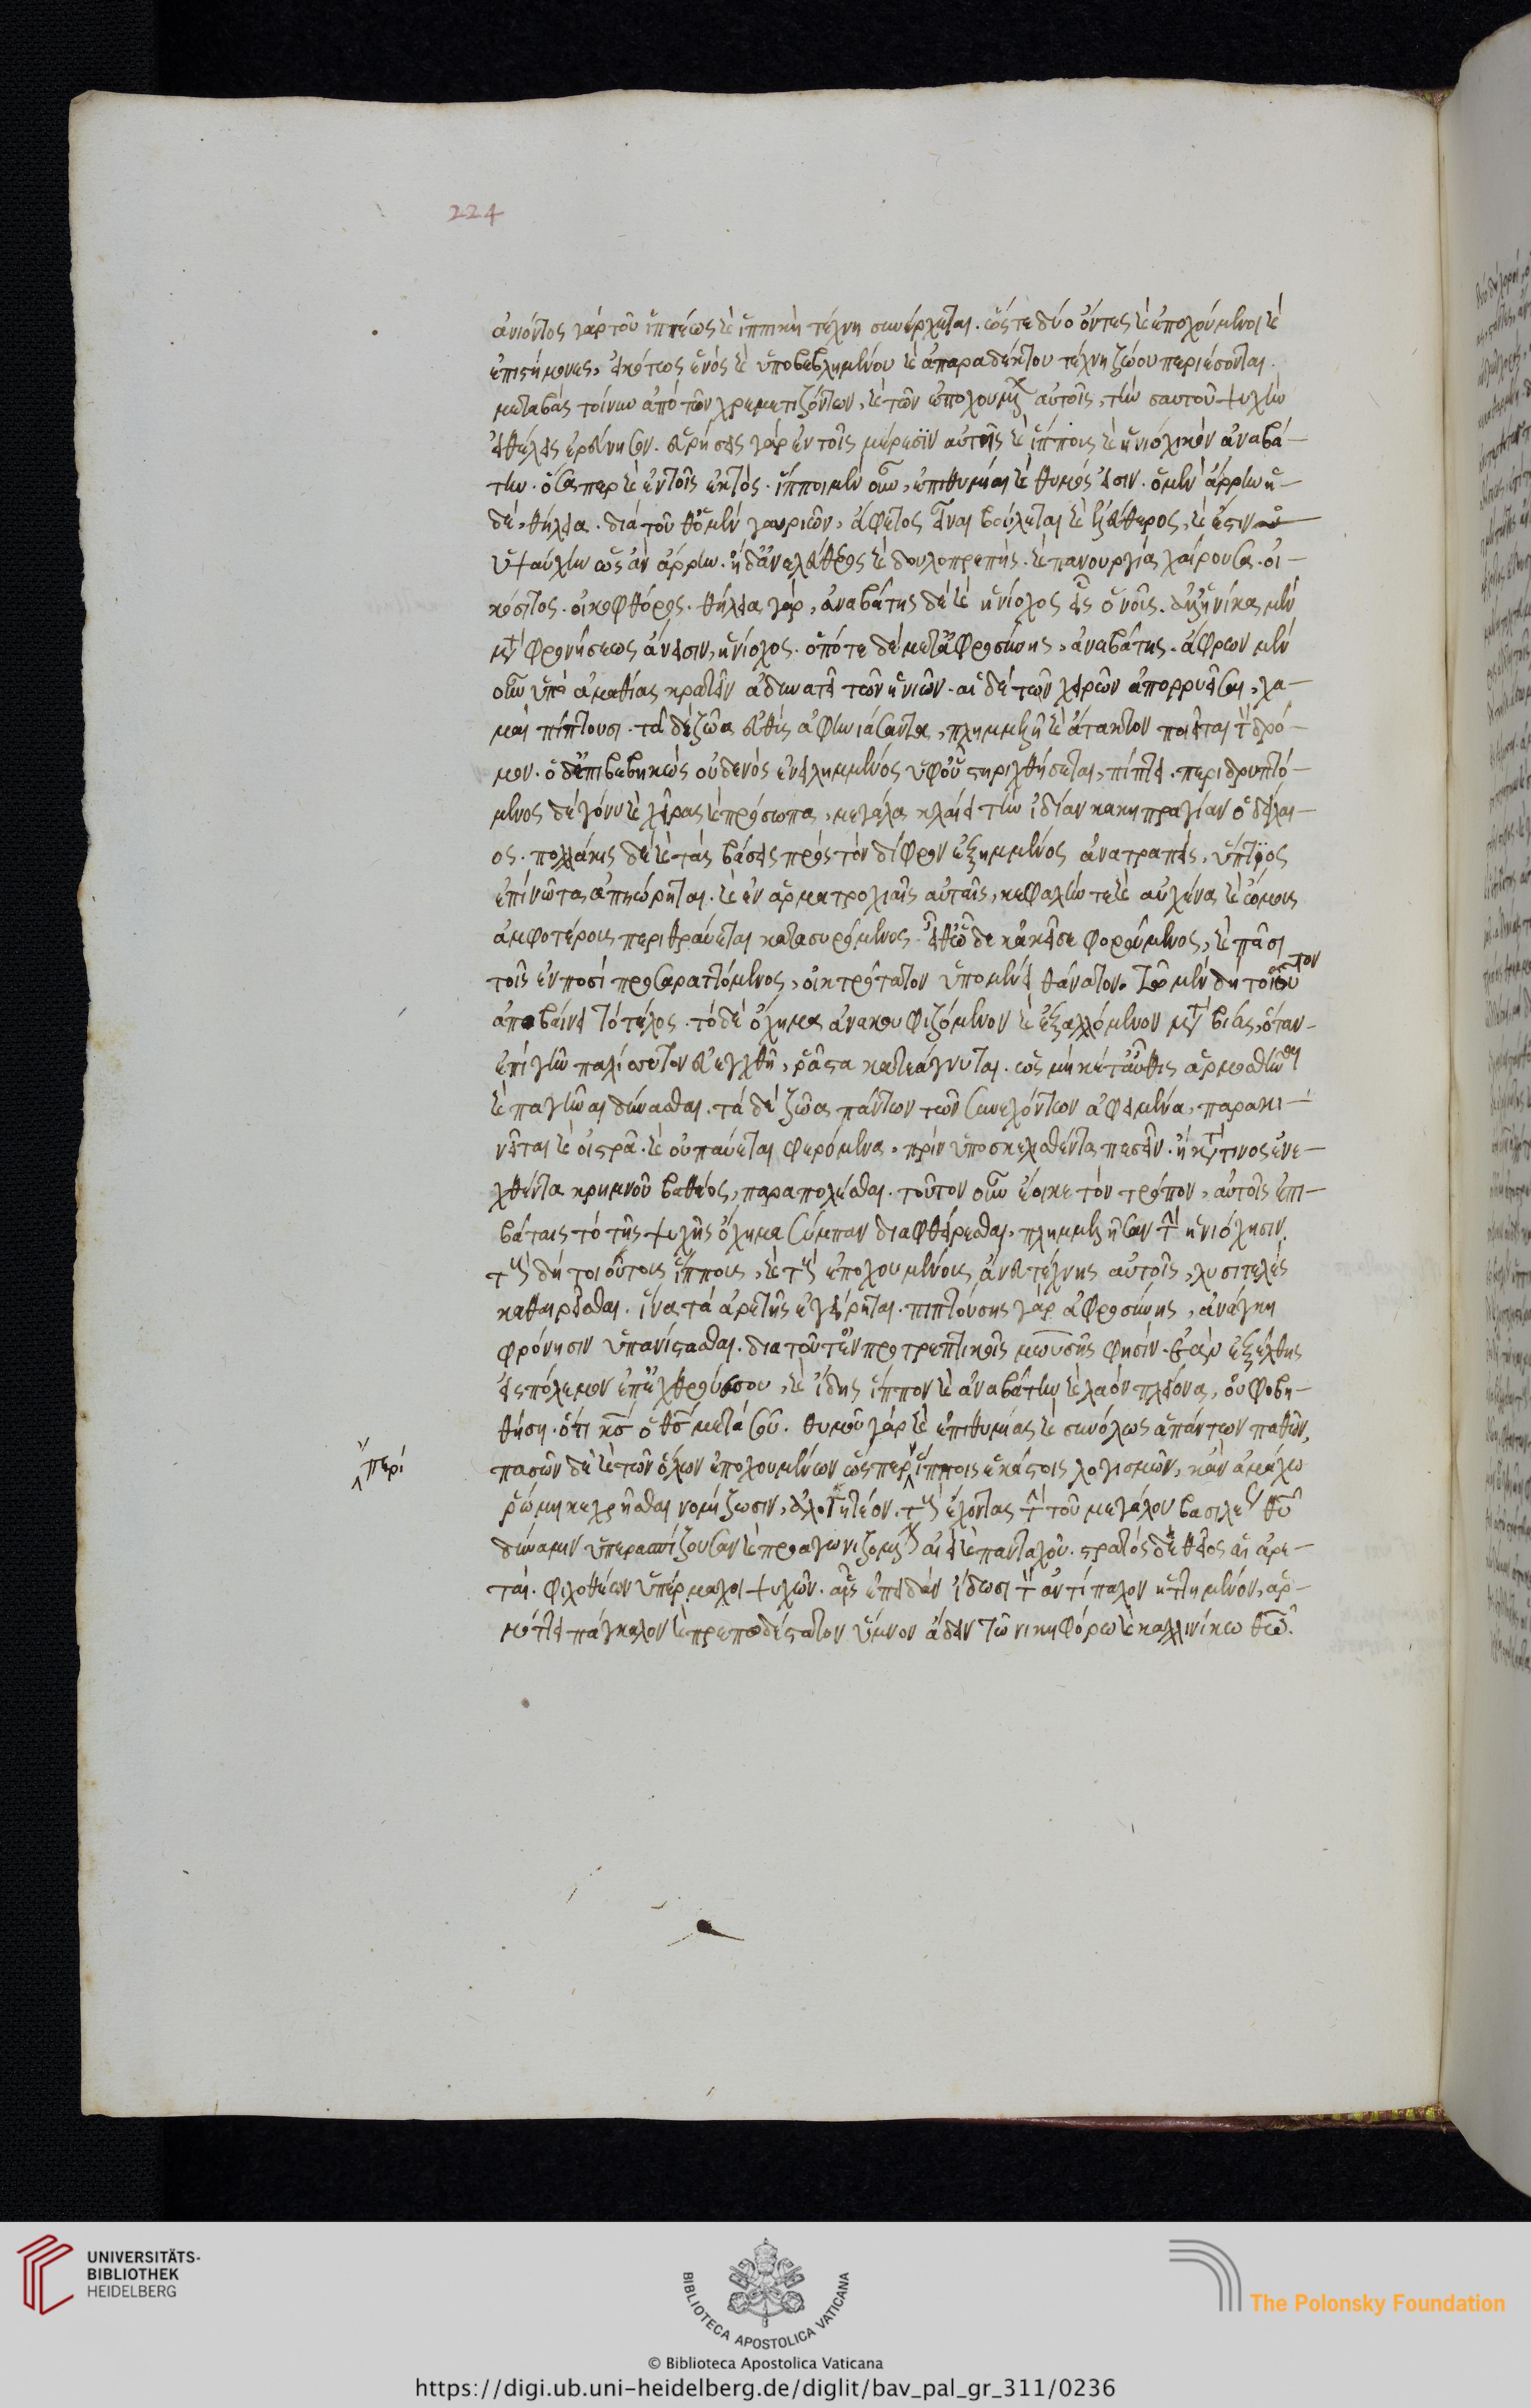 224
ἀνιόντος γὰρ τοῦ ἱππέως καὶ ἱππικὴ τέχνη συνέρχεται. ὥστε δύο ὄντες καὶ ἐποχούμενοι καὶ
ἐπιστήμονες, εἰκότως ἑνὸς καὶ ὑποβεβλημένου καὶ ἀπαραδέκτου τέχνη ζώου περιέσονται.
μεταβὰς τοίνυν ἀπὸ τῶν χρεμετιζόντων, καὶ τῶν ἐποχουμένων αὐτοῖς, τὴν σαυτοῦ ψυχὴν
εἰ θέλεις ἐρεύνησον. εὑρήσεις γὰρ ἐν τοῖς μέρεσϊν αὐτῆς καὶ ἵππους καὶ ἡνίοχον ἀναβά-
την. ὅσα περ καὶ ἐν τοῖς ἐκτός. ἵπποι μὲν οὖν, ἐπιθυμία καὶ θυμός εἰσιν. ὁ μὲν ἄρρην ἡ
δὲ, θήλεια. διὰ τοῦθ' ὁ μὲν γαυριῶν, ἄφετος εἶναι βούλεται καὶ ἐλεύθερος, καὶ ἔστιν
ὑψαύχην ὡς ἂν ἄρρην. ἡ δ' ἀνελεύθερος καὶ δουλοπρεπής. καὶ πανουργία χαίρουσα. οἰ-
κόσιτος. οἰκοφθόρος. θήλεια γάρ, ἀναβάτης δὲ καὶ ἡνίοχος εἷς ὁ νοῦς. ἀλλ' ἡνίκα μὲν
μετὰ φρονήσεως ἄνεισιν, ἡνίοχος. ὁπότε δὲ μετ' ἀφροσύνης, ἀναβάτης. ἄφρων μὲν
οὖν ὑπὸ ἀμαθίας κρατεῖν ἀδυνατεῖ τῶν ἡνιῶν. αἱ δὲ τῶν χειρῶν ἀπορρυεῖσαι, χα-
μαὶ πίπτουσι. τὰ δὲ ζῶα εὐθὺς ἀφηνιάσαντα, πλημμελῆ καὶ ἄτακτον ποιεῖται τὸν δρό-
μον. ὁ δ' ἐπιβεβηκὼς οὐδενὸς ἐνειλημμένος ὑφ' οὗ στηριχθήσεται, πίπτει. περιδρυπτό-
μενος δὲ γόνυ καὶ χεῖρας καὶ πρόσωπα, μεγάλα κλαίει τὴν ἰδίαν κακηπραγίαν ὁ δείλαι-
ος. πολλάκις δὲ καὶ τὰς βάσεις πρὸς τὸν δίφρον ἐξημμένος ἀνατραπεὶς, ὕπτιος
ἐπὶ νῶτα ἀπῃώρηται. καὶ ἐν ἁρματροχιαῖς αὐταῖς, κεφαλήν τε καὶ αὐχένα καὶ ὤμους
ἀμφοτέρους περιθραύεται κατασυρόμενος. εἶθ' ὧδε κἀκεῖσε φορούμενος, καὶ πᾶσι
τοῖς ἐν ποσὶ προσαραττόμενος, οἰκτρότατον ὑπομένει θάνατον. τῷ μὲν δὴ τοιοῦτον
ἀποβαίνει τὸ τέλος. τὸ δὲ ὄχημα ἀνακουφιζόμενον καὶ ἐξαλλόμενον μετὰ βίας, ὅταν-
ἐπὶ γῆν παλίσσυτον ἐνεχθῇ, ῥᾶστα κατεάγνυται. ὡς μηκέτ' αὖθις ἁρμοσθῆναι
καὶ παγῆναι δύνασθαι. τὰ δὲ ζῶα πάντων τῶν συνεχόντων ἀφειμένα, παρακι-
νεῖται καὶ οἰστρᾶ. καὶ οὐ παύεται φερόμενα, πρὶν ὑποσκελισθέντα πεσεῖν. ἢ κατὰ τινος ἐνε-
χθέντα κρημνοῦ βαθέος, παραπολέσθαι. τοῦτον οὖν ἔοικε τὸν τρόπον, αὐτοῖς ἐπι-
βάταις τὸ τῆς ψυχῆς ὄχημα σύμπαν διαφθείρεσθαι. πλημμελῆσαν τὴν ἡνιόχησιν.
τοὺς δὴ τοιούτους ἵππους, καὶ τοὺς ἐποχουμένους ἄνευ τέχνης αὐτοῖς, λυσιτελὲς
καθαιρεῖσθαι. ἵνα τὰ ἀρετῆς ἐγείρηται. πιπτούσης γὰρ ἀφροσύνης, ἀνάγκη
φρόνησιν ὑπανίστασθαι. διὰ τοῦτ' ἐν προτρεπτικοῖς μωυσῆς φησίν. ἐὰν ἐξέλθης
εἰς πόλεμον ἐπ' ἐχθρούς σου, καὶ ἴδης ἵππον καὶ ἀναβάτην καὶ λαὸν πλείονα, οὐ φοβη-
θήση. ὅτι κ̅ς̅ ὁ θ̅ς̅ μετὰ σοῦ. θυμοῦ γὰρ καὶ ἐπιθυμίας καὶ συνόλως ἁπάντων παθῶν,
περὶ
πασῶν δὲ καὶ τῶν ὅλων ἐποχουμένων ὥσπερ ἵπποις ἑκάστοις λογισμῶν, κἂν ἀμάχω
ῥώμη κεχρῆσθαι νομίζωσιν, ἀλογητέον. τοὺς ἔχοντας τὴν τοῦ μεγάλου βασιλέως θ̅υ̅
δύναμιν ὑπερασπίζουσαν καὶ προαγωνιζομένην ἀεὶ καὶ πανταχοῦ. στρατὸς δὲ θεῖος αἱ ἀρε-
ταί. φιλοθέων ὑπέρμαχοι ψυχῶν. αἷς ἐπειδὰν ἴδωσι τὸν ἀντίπαλον ἡττημένον, ἁρ-
μόττει πάγκαλον καὶ πρεπωδέστατον ὕμνον ἄδειν τῷ νικηφόρω καὶ καλλινίκω θ̅ω̅.
UNIVERSITÄTS-
BIBLIOTHEK
HEIDELBERG
BIBLIOTECA APOSTOLICA VATICANA
The Polonsky Foundation
© Biblioteca Apostolica Vaticana
https://digi.ub.uni-heidelberg.de/diglit/bav_pal_gr_311/0236